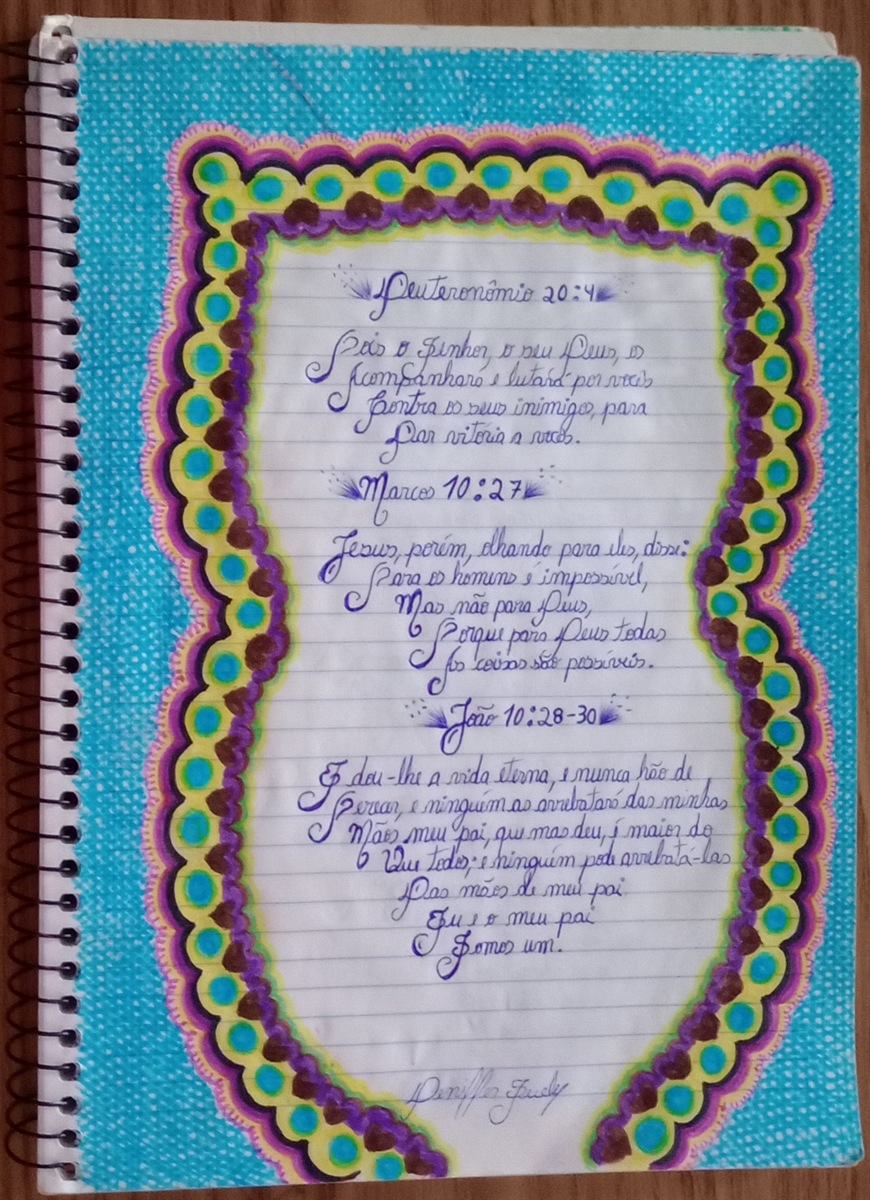 Deuteronômio 20:4
Pois o Senhor, o seu Deus, os
Acompanhará e lutará por vocês
Contra os seus inimigos, para
Dar vitória a vocês.
Marcos 10:27
Jesus, porém, olhando para eles, disse:
Para os homens é impossível,
Mas não para Deus,
Porque para Deus todas
As coisas são possíveis.
João 10:28-30
E dou-lhe a vida eterna, e nunca hão de
Perecer, e ninguém as arrebatará das minhas
Mãos meu pai, que mas deu, é maior do
Que todos; e ninguém pode arrebatá-las
Das mãos de meu pai
Eu e o meu pai
Somos um.